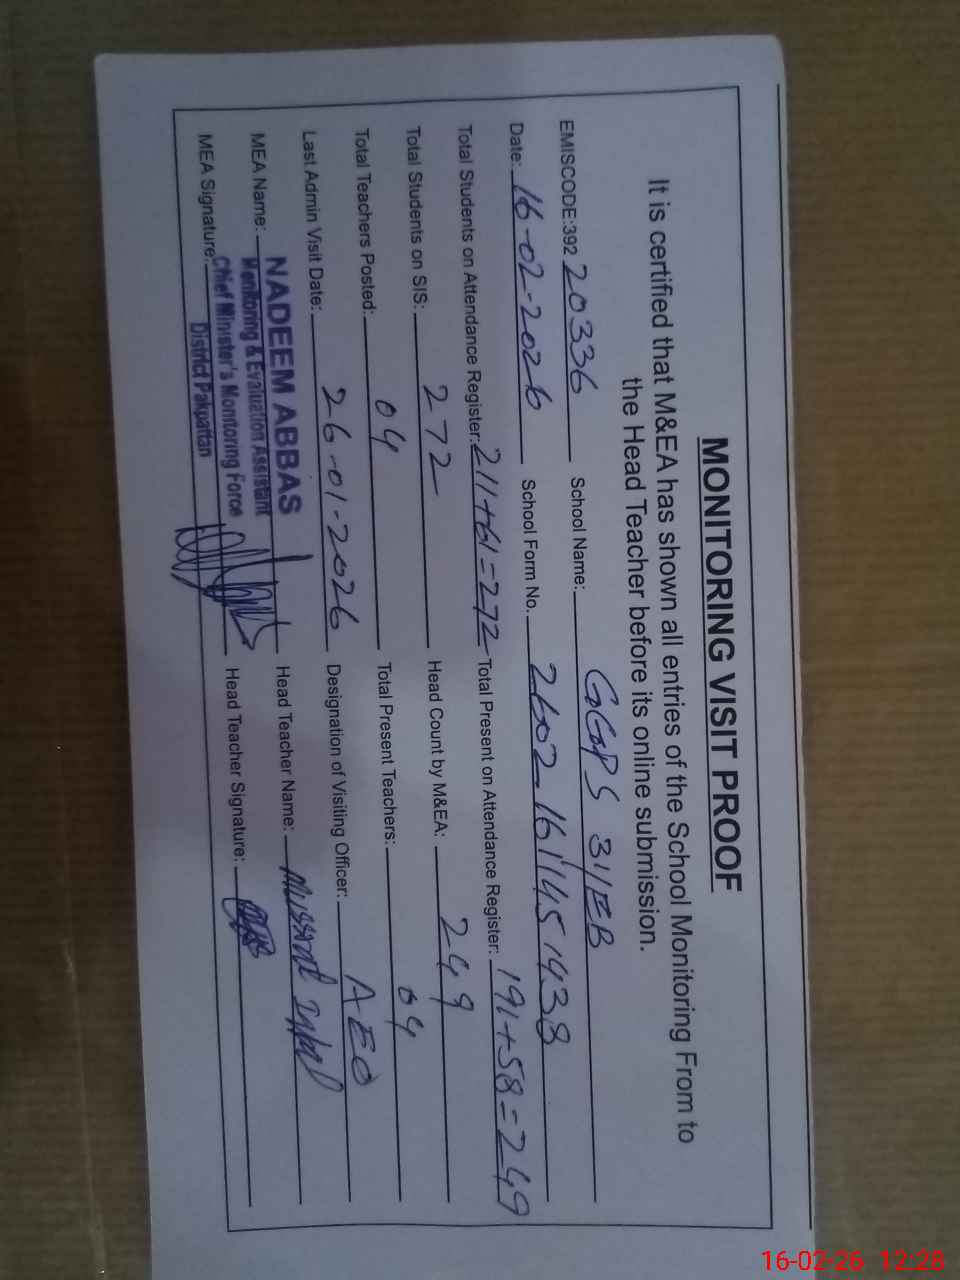 MONITORING VISIT PROOF
It is certified that M&EA has shown all entries of the School Monitoring From to
the Head Teacher before its online submission.
EMISCODE:392 20336 School Name: GGPS 31/EB
Date: 16-02-2026 School Form No. 2602-161145 1438
Total Students on Attendance Register: 211+61=272 Total Present on Attendance Register: 191+58=249
Total Students on SIS: 272 Head Count by M&EA: 249
Total Teachers Posted: 04 Total Present Teachers: 04
Last Admin Visit Date: 26-01-2026 Designation of Visiting Officer: AEO
MEA Name: NADEEM ABBAS Head Teacher Name:
Monitoring & Evaluation Assistant
MEA Signature: Chief Minister's Monitoring Force Head Teacher Signature:
District Pakpattan
16-02-26 12:28